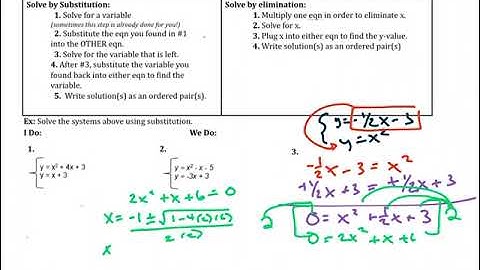 Solve by Substitution:
1. Solve for a variable
(sometimes this step is already done for you!)
2. Substitute the eqn you found in #1
into the OTHER eqn.
3. Solve for the variable that is left.
4. After #3, substitute the variable you
found back into either eqn to find the
variable.
5. Write solution(s) as an ordered pair(s).
Solve by elimination:
1. Multiply one eqn in order to eliminate x.
2. Solve for x.
3. Plug x into either eqn to find the y-value.
4. Write solution(s) as an ordered pair(s)
Ex: Solve the systems above using substitution.
I Do:
We Do:
1.
y = x² + 4x + 3
y = x + 3
2.
y = x² - x - 5
y = -3x + 3
3.
y = -1/2x - 3
y = x²
-1/2x - 3 = x²
+1/2x + 3 = +1/2x + 3
2 [0 = x² + 1/2x + 3] 2
0 = 2x² + x + 6
2x² + x + 6 = 0
x = -1 ± √1 - 4(2)(6)
2(2)
x